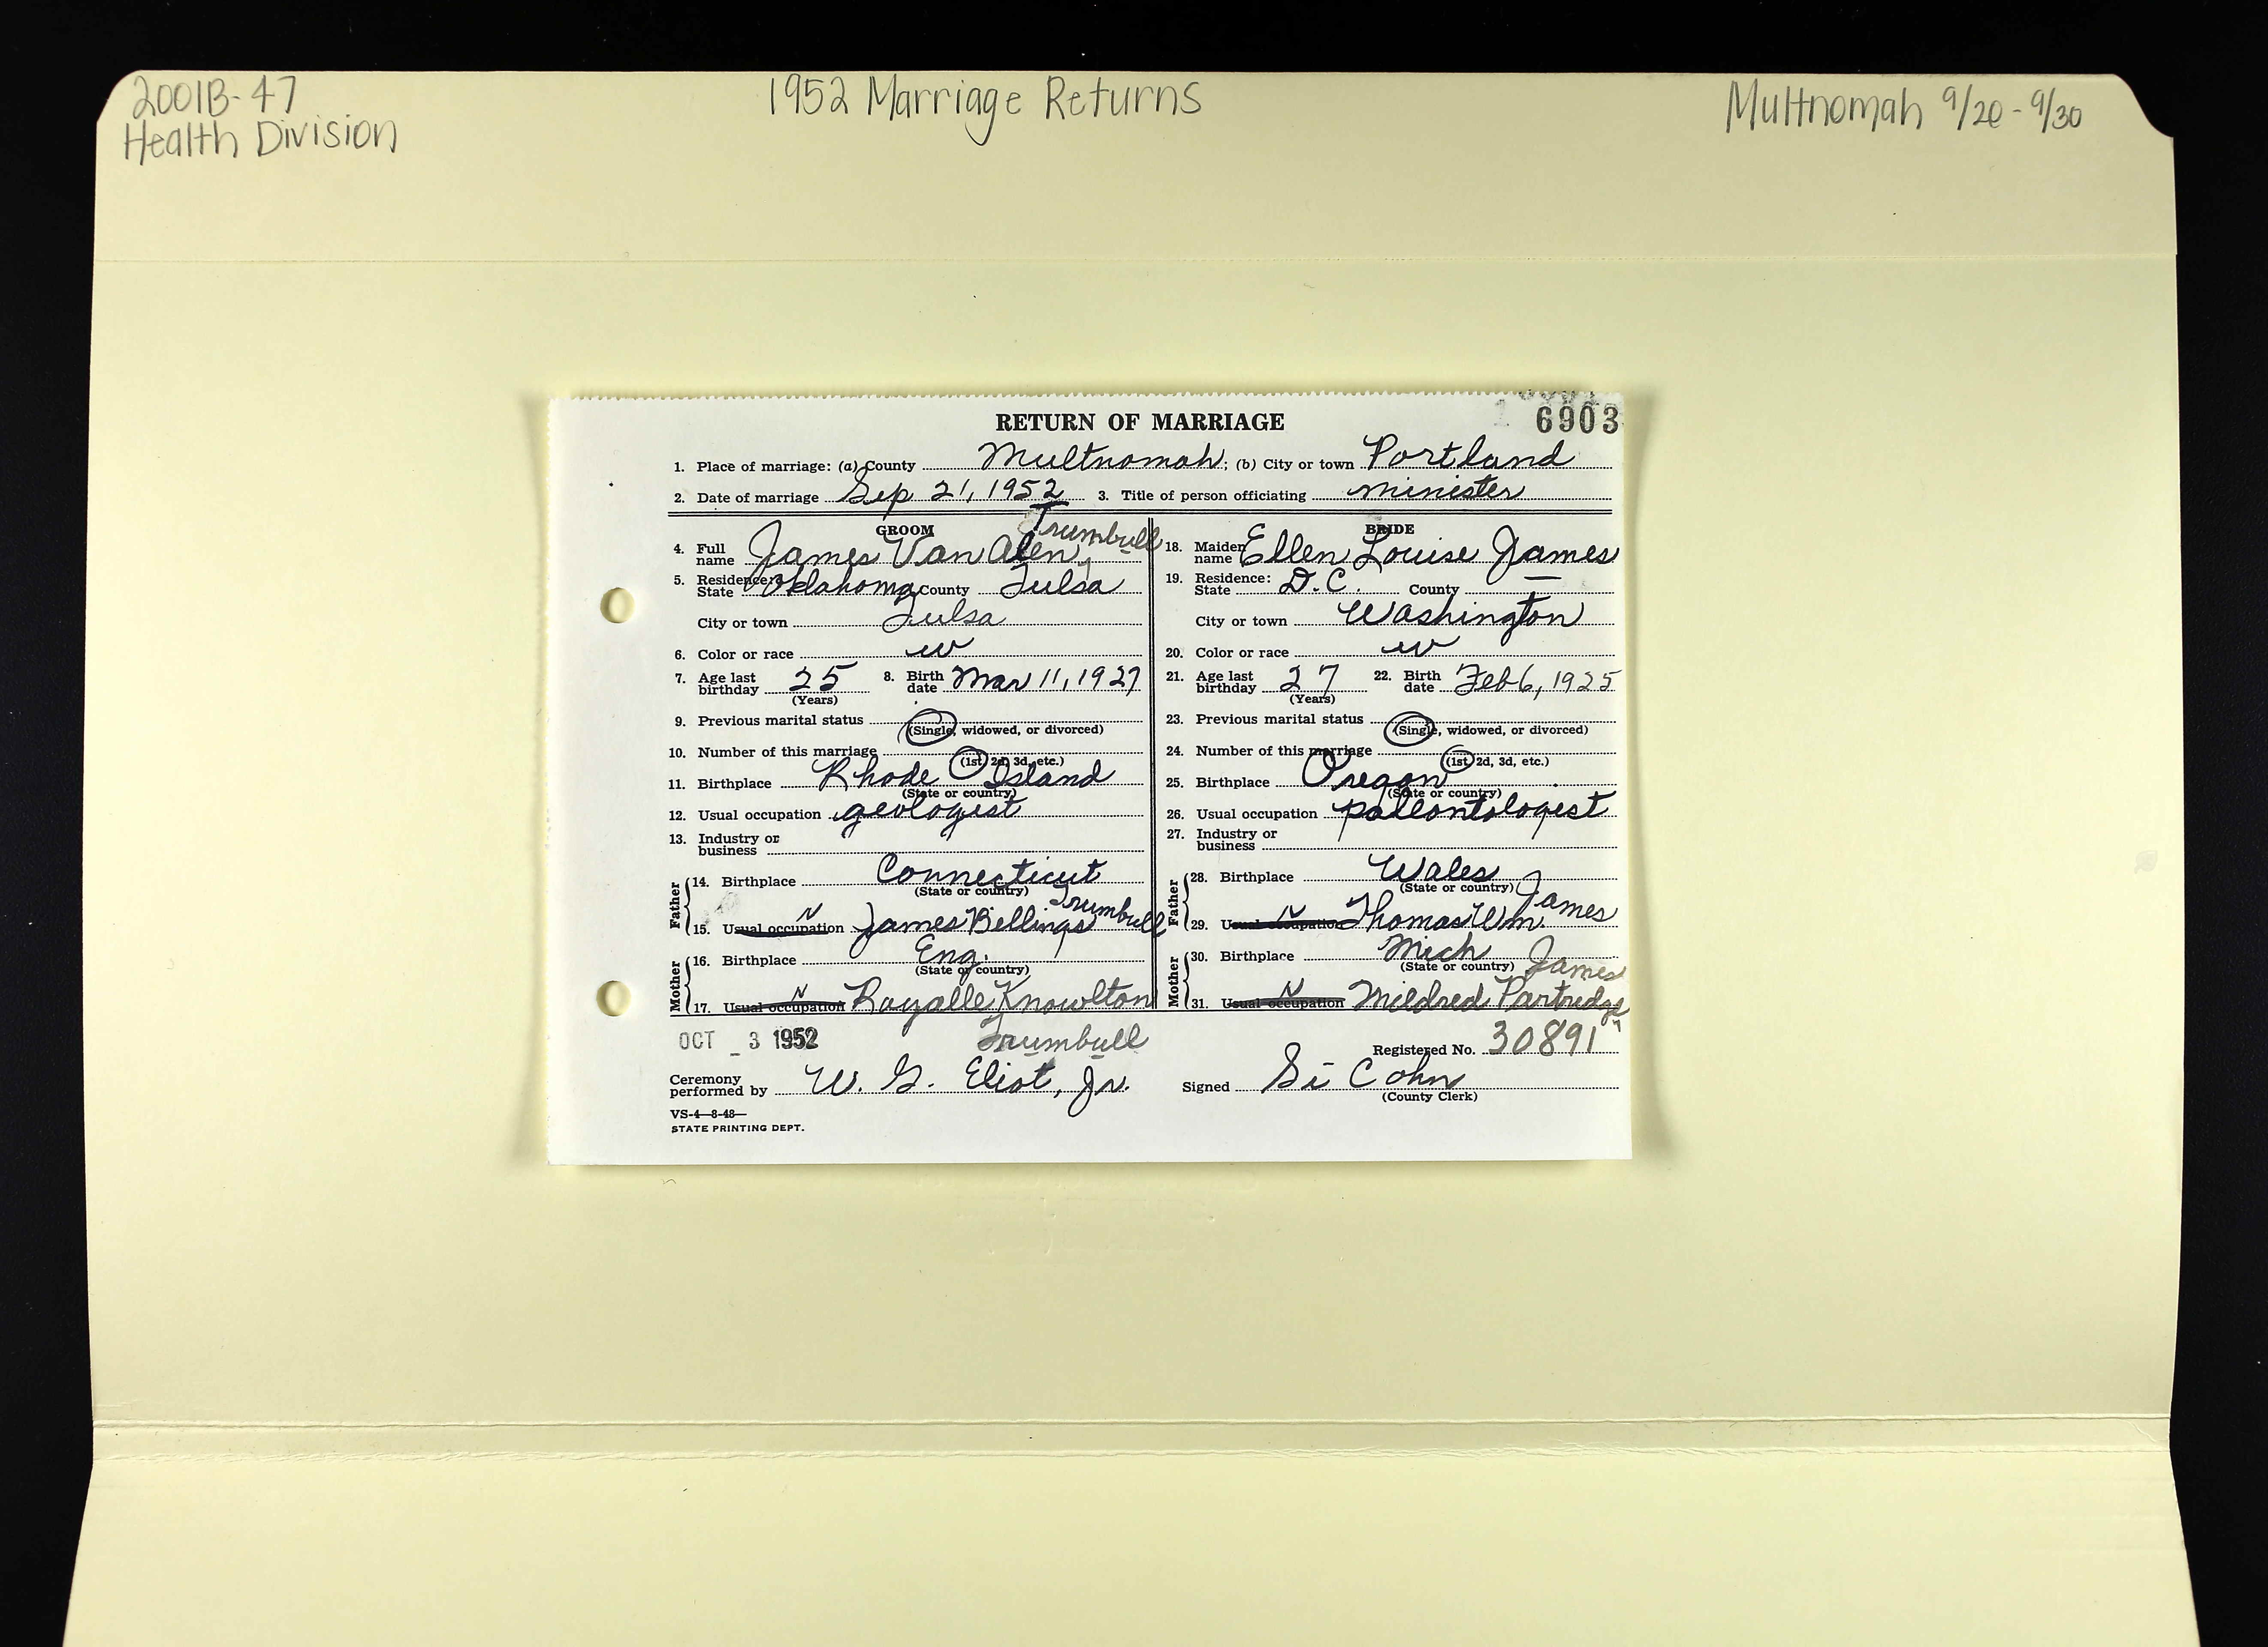 2001B-47
Health Division
1952 Marriage Returns
Multnomah 9/20-9/30
6903
RETURN OF MARRIAGE
1. Place of marriage: (a) County Multnomah; (b) City or town Portland
2. Date of marriage Sep 21, 1952 3. Title of person officiating minister
GROOM
4. Full name James Van Alen Trumbull
5. Residence: State Oklahoma County Tulsa
City or town Tulsa
6. Color or race w
7. Age last birthday 25 (Years) 8. Birth date Mar 11, 1927
9. Previous marital status (Single, widowed, or divorced)
10. Number of this marriage (1st, 2d, 3d, etc.)
11. Birthplace Rhode Island (State or country)
12. Usual occupation geologist
13. Industry or business
Father
14. Birthplace Connecticut (State or country)
15. Usual occupation N James Billings Trumbull
Mother
16. Birthplace Eng. (State or country)
17. Usual occupation N Rayalle Knowlton Trumbull
BRIDE
18. Maiden name Ellen Louise James
19. Residence: State D.C. County —
City or town Washington
20. Color or race w
21. Age last birthday 27 (Years) 22. Birth date Feb 6, 1925
23. Previous marital status (Single, widowed, or divorced)
24. Number of this marriage (1st 2d, 3d, etc.)
25. Birthplace Oregon (State or country)
26. Usual occupation paleontologist
27. Industry or business
Father
28. Birthplace Wales (State or country)
29. Usual occupation N Thomas Wm. James
Mother
30. Birthplace Mich (State or country)
31. Usual occupation N Mildred Partridge James
OCT _ 3 1952
Registered No. 30891
Ceremony performed by W. G. Eliot, Jr.
Signed Si Cohn
(County Clerk)
VS-4—8-48—
STATE PRINTING DEPT.